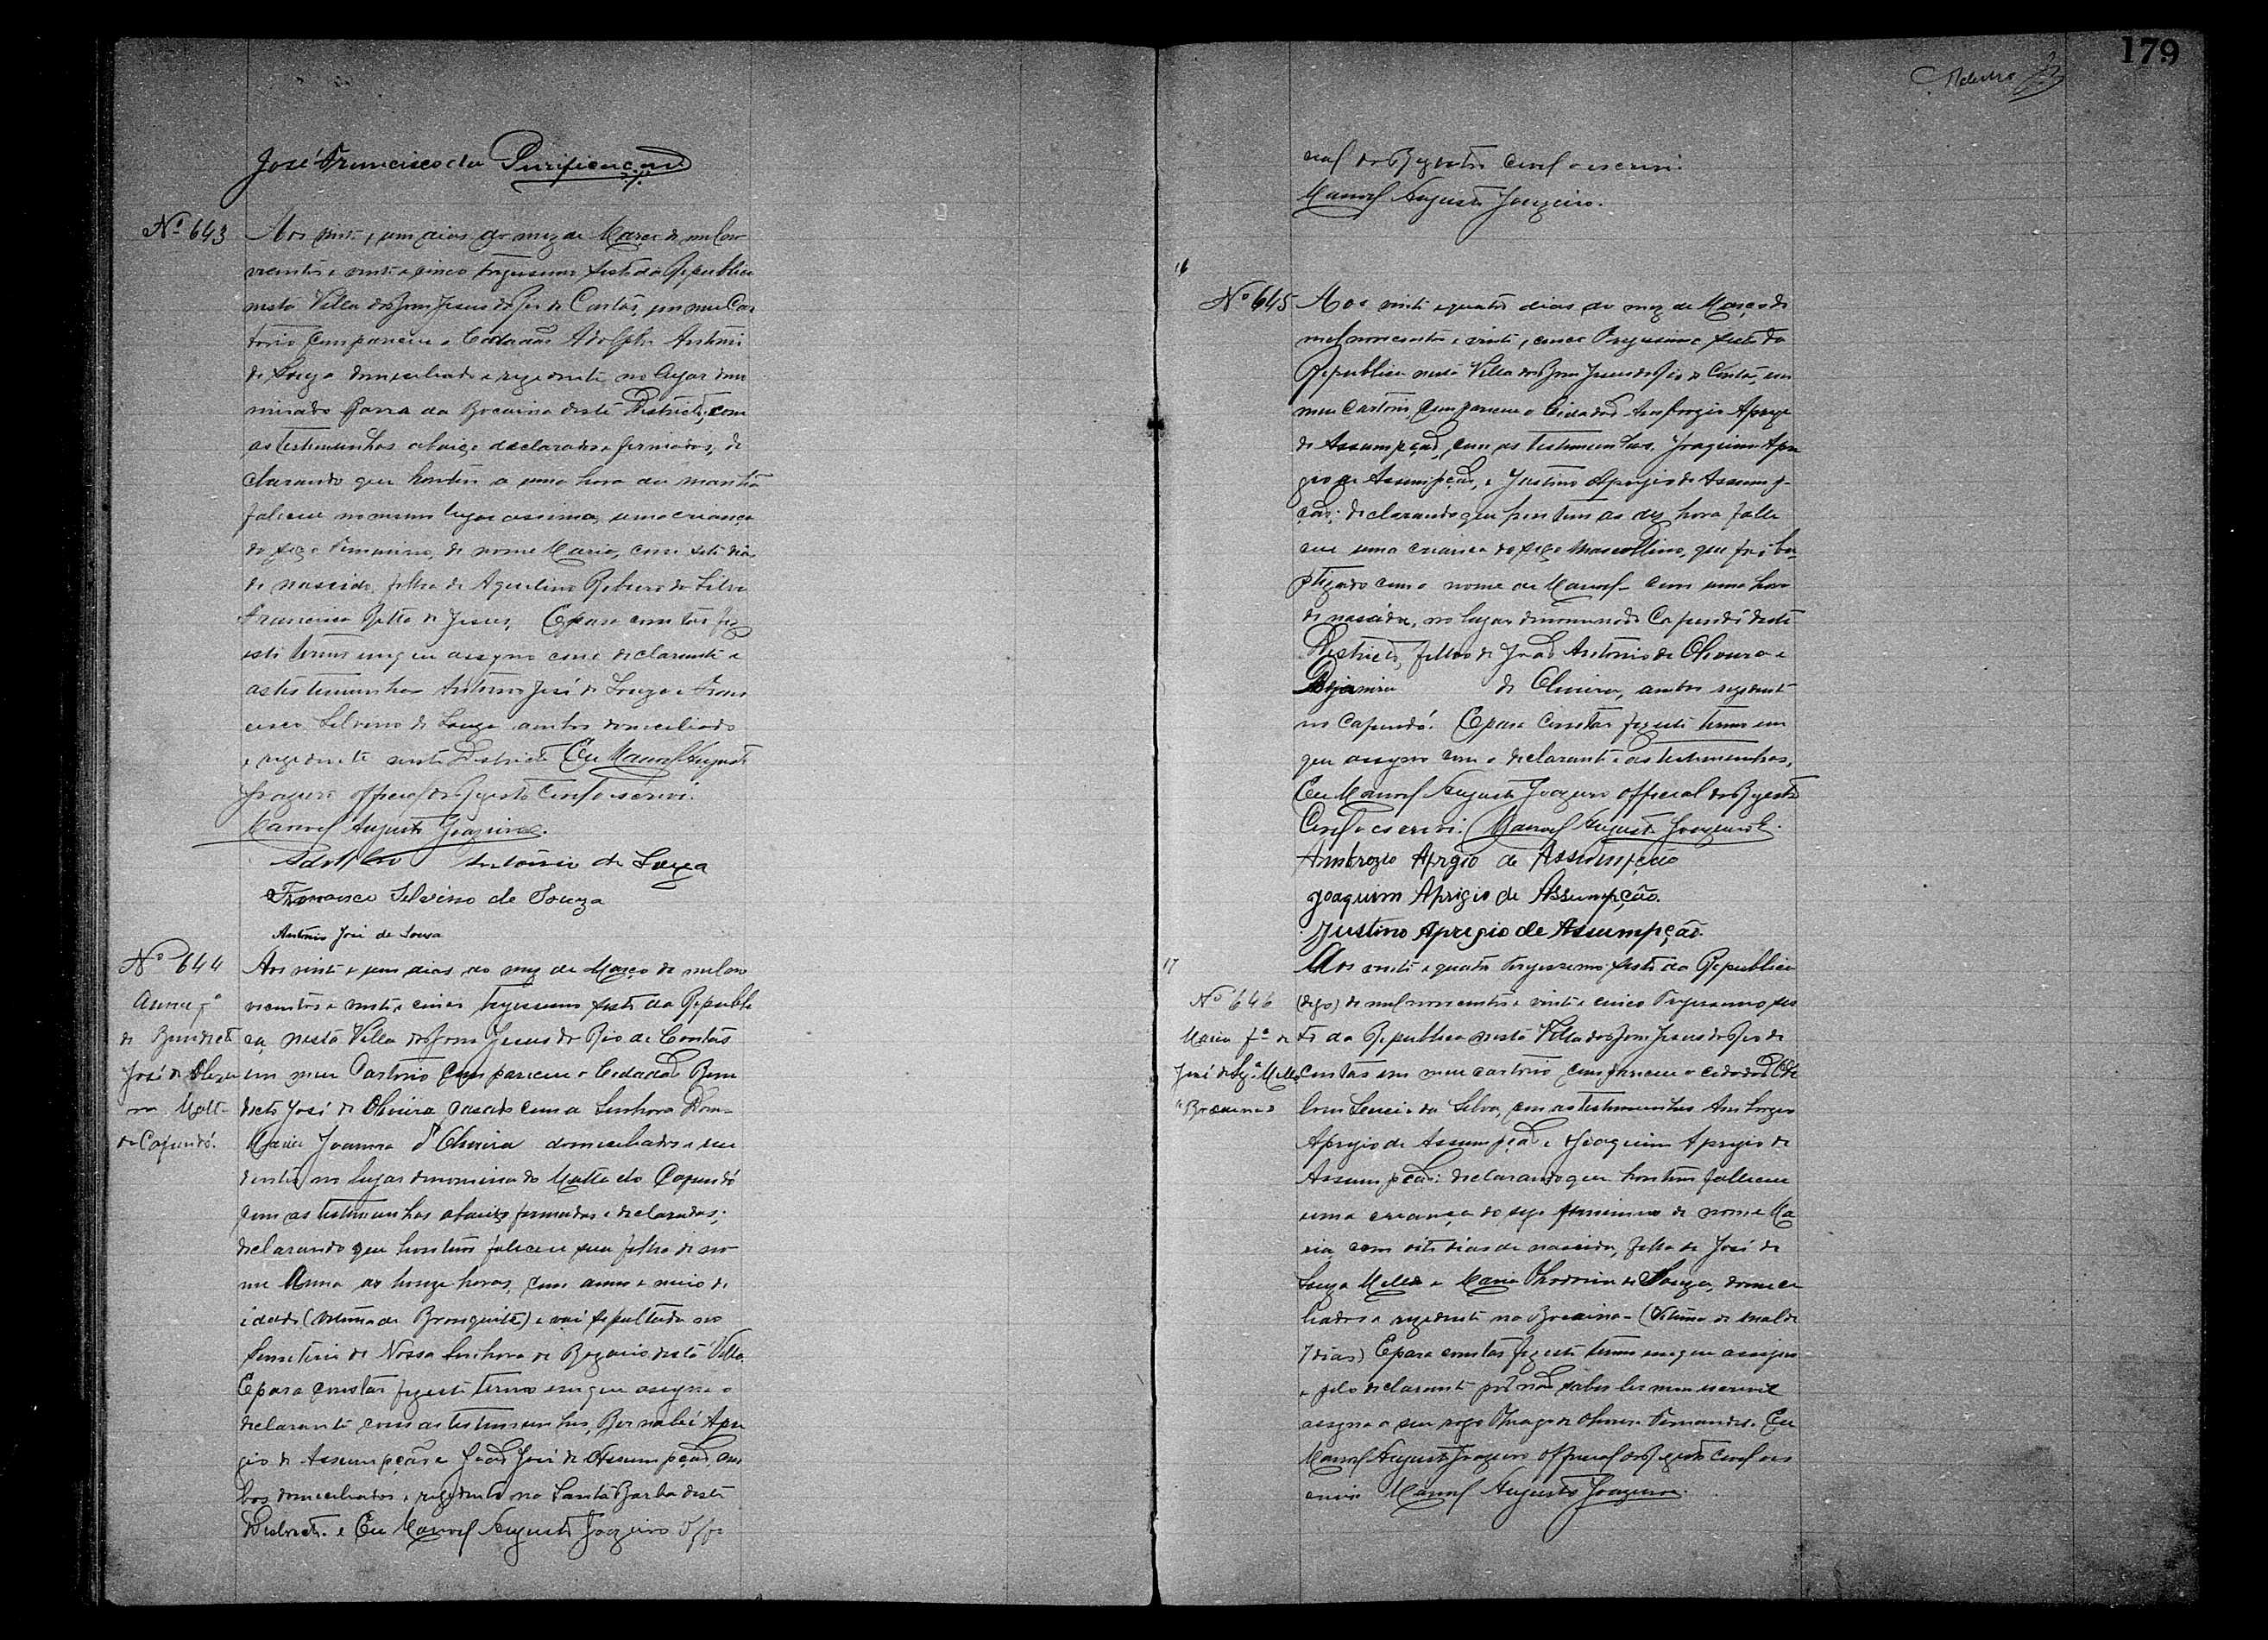 José Francisco da Purificação
Nº 643
Aos vinte e um dias do mez de Março de mil no
vecentos e vinte e cinco trigessimo sesto da Republica
nesta Villa do Bom Jesus do Rio de Contas, em meu Car
torio compareceu o Cidadão Adolpho Antonio
de Souza domiciliado e rezidente no lugar deno
minado Barra da Bocaina deste Districto, com
as testemunhas abaixo declarados e firmados, de
clarando que hontem a uma hora da manhã
faleceu no mesmo lugar assima, uma criança
do sexo Feminino, de nome Maria, com sete dias
de nascido, filha de Aquelino Ribeiro da Silva
Francisca Ritta de Jesus, E para constar fiz
este termo em que assigno com o declarante e
as testemunhas Antonio José de Souza e Fran
cisco Silvino de Souza ambos domiciliado
e rezidente neste Districto Eu Manoel Augusto
Joazeiro official do Registo Civil o escrevi.
Manoel Augusto Joazeiro.
Adolpho Antonio de Souza
Francisco Silvino de Souza
Antonio José de Sousa
Nº 644
Anna fª
de Benedicto
José de Olivei
ra Matta
do Capundó.
Aos vinte e um dias do mez de Março de mil no
vecentos e vinte e cinco trigessimo sesto da Republi
ca, nesta Villa do Bom Jesus do Rio de Contas
em meu Cartorio compareceu o Cidadão Bene
dicto José de Oliveira casado com a Senhora Dona
Maria Joanna d'Oliveira domiciliados e resi
dentes no lugar denominado Matta do Capundó
com as testemunhas abaixo firmadas e declaradas;
declarando que hontem faleceu sua filha de no
me Anna as honze horas, com anno e meio de
idade (vitima de Bronquite) e vai sepultada no
Semiterio de Nossa Senhora do Rozario desta Villa.
E para constar fiz este termo em que assigna o
declarante com as testemunhas, Bernabé Apri
gio de Assumpção e João José de Assumpção, am
bos domiciliados e rezidente na Santa Barba deste
Districto. e Eu Manoel Augusto Joazeiro offi
179
cial do Registro Civil o escrevi.
Manoel Augusto Joazeiro.
16
Nº 645
Aos vinte e quatro dias do mez de Março de
mil novecentos e vinte e cinco Trigesimo sesto da
Republica nesta Villa do Bom Jesus do Rio de Contas, em
meu Cartorio, compareceu o Cidadão Ambrozio Aprigio
de Assumpção, com as testemunhas, Joaquim Apri
gio de Assumpção, e Justino Aprigio de Assump-
ção; declarando que hontem as dez hora falle
ceu uma criança do sexo Mascullino, que foi ba
ptizado com o nome de Manoel com uma hora
de nascida, no lugar dinominado Capundó deste
Districto, filho de João Antonio de Oliveira e
de Oliveira, ambos rezidente
no Capundó. E para Constar fiz este termo em
que assigno com o declarante e as testemunhas,
Eu Manoel Augusto Joazeiro official do Registo
Civil o escrevi. Manoel Augusto Joazeiro
Ambrozio Aprgio de Assumpção
Joaquim Aprigio de Assumpção.
Justino Aprigio de Assumpção.
17
Nº 646
Maria fª de
José de Sza Mello
Bocaina
Aos vinte e quatro trigessimo sesto da Republica
(digo) de mil novecentos e vinte e cinco Trigessimo ses
to da Republica nesta Villa do Bom Jesus do Rio de
Contas em meu cartorio compareceu o cidadão
da Silva, com as testemunhas Ambrozio
Aprigio de Assumpção e Joaquim Aprigio de
Assumpção: declarando que hontem falleceu
uma criança do sexo feminino de nome Ma
ria com oito dias de nascida, filha de José de
Souza Mello e Maria Theodoria de Souza, domici
liados e rezidente na Bocaina - (Vitima de mal de
7 dias) E para constar fiz este termo em que assigno
e pelo declarante por não saber ler nem escrever
assigna a seu rogo Thiago de Oliveira Fernandes. Eu
Manoel Augusto Joazeiro official do Registo Civil o es
crevi Manoel Augusto Joazeiro.